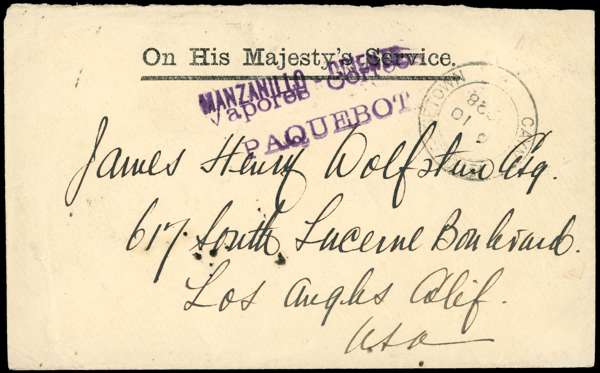 On His Majesty's Service.
MANZANILLO - ORIENTE
Vapores Correo
PAQUEBOT
TOWN
CAY
28
10
James Henry Wolfstein Esq.
617 South Lucerne Boulevard.
Los Angles Calif.
USA